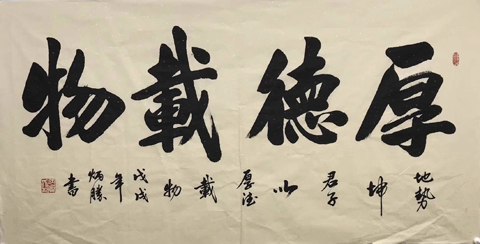 厚德載物
地勢坤君子以厚德載物戊戌年炳勝書